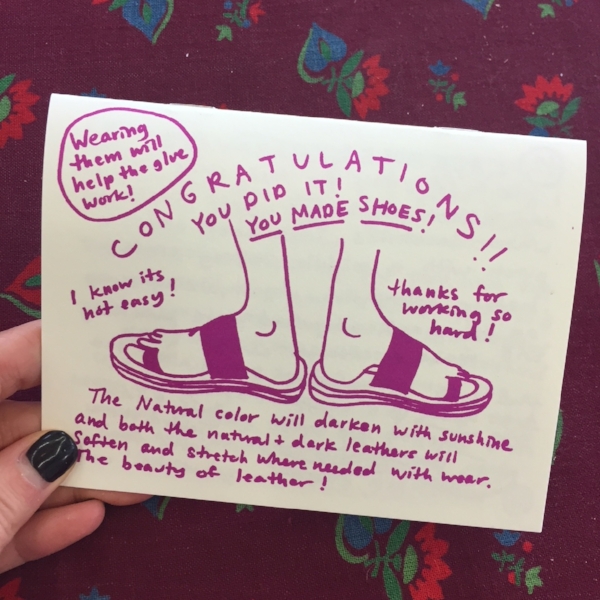 Wearing
them will
help the glue
work!
CONGRATULATIONS!!
YOU DID IT!
YOU MADE SHOES!
I know its
not easy!
thanks for
working so
hard!
The Natural color will darken with sunshine
and both the natural + dark leathers will
soften and stretch where needed with wear.
The beauty of leather!